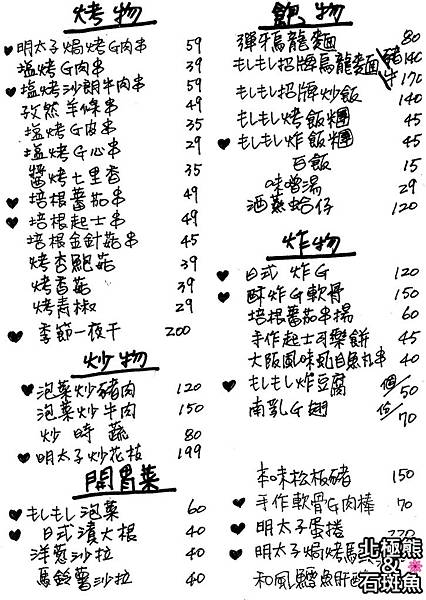 烤物
♥明太子焗烤G肉串 59
塩烤G肉串 39
♥塩烤沙朗牛肉串 59
孜然羊條串 49
塩烤G皮串 35
塩烤G心串 29
醬烤七里香 35
♥培根蕃茄串 49
♥培根起士串 49
培根金針菇串 45
烤杏鮑菇 39
烤香菇 39
烤青椒 29
♥季節一夜干 200
炒物
♥泡菜炒豬肉 120
泡菜炒牛肉 150
炒時蔬 80
♥明太子炒花枝 199
開胃菜
♥もしもし泡菜 60
♥日式漬大根 40
洋蔥沙拉 40
馬鈴薯沙拉 40
飽物
彈牙烏龍麵 80
もしもし招牌烏龍麵 豬140 牛170
もしもし招牌炒飯 140
♥もしもし烤飯糰 45
♥もしもし炸飯糰 45
白飯 15
味噌湯 29
酒蒸蛤仔 120
炸物
♥日式炸G 120
♥酥炸G軟骨 150
培根蕃茄串揚 60
手作起士可樂餅 45
大阪風味虱目魚丸串 40
♥もしもし炸豆腐 個/50
南乳G翅 份/70
本味松板豬 150
♥手作軟骨G肉棒 70
♥明太子蛋捲 220
♥明太子焗烤馬
和風鱈魚肝
北極熊
&
石斑魚